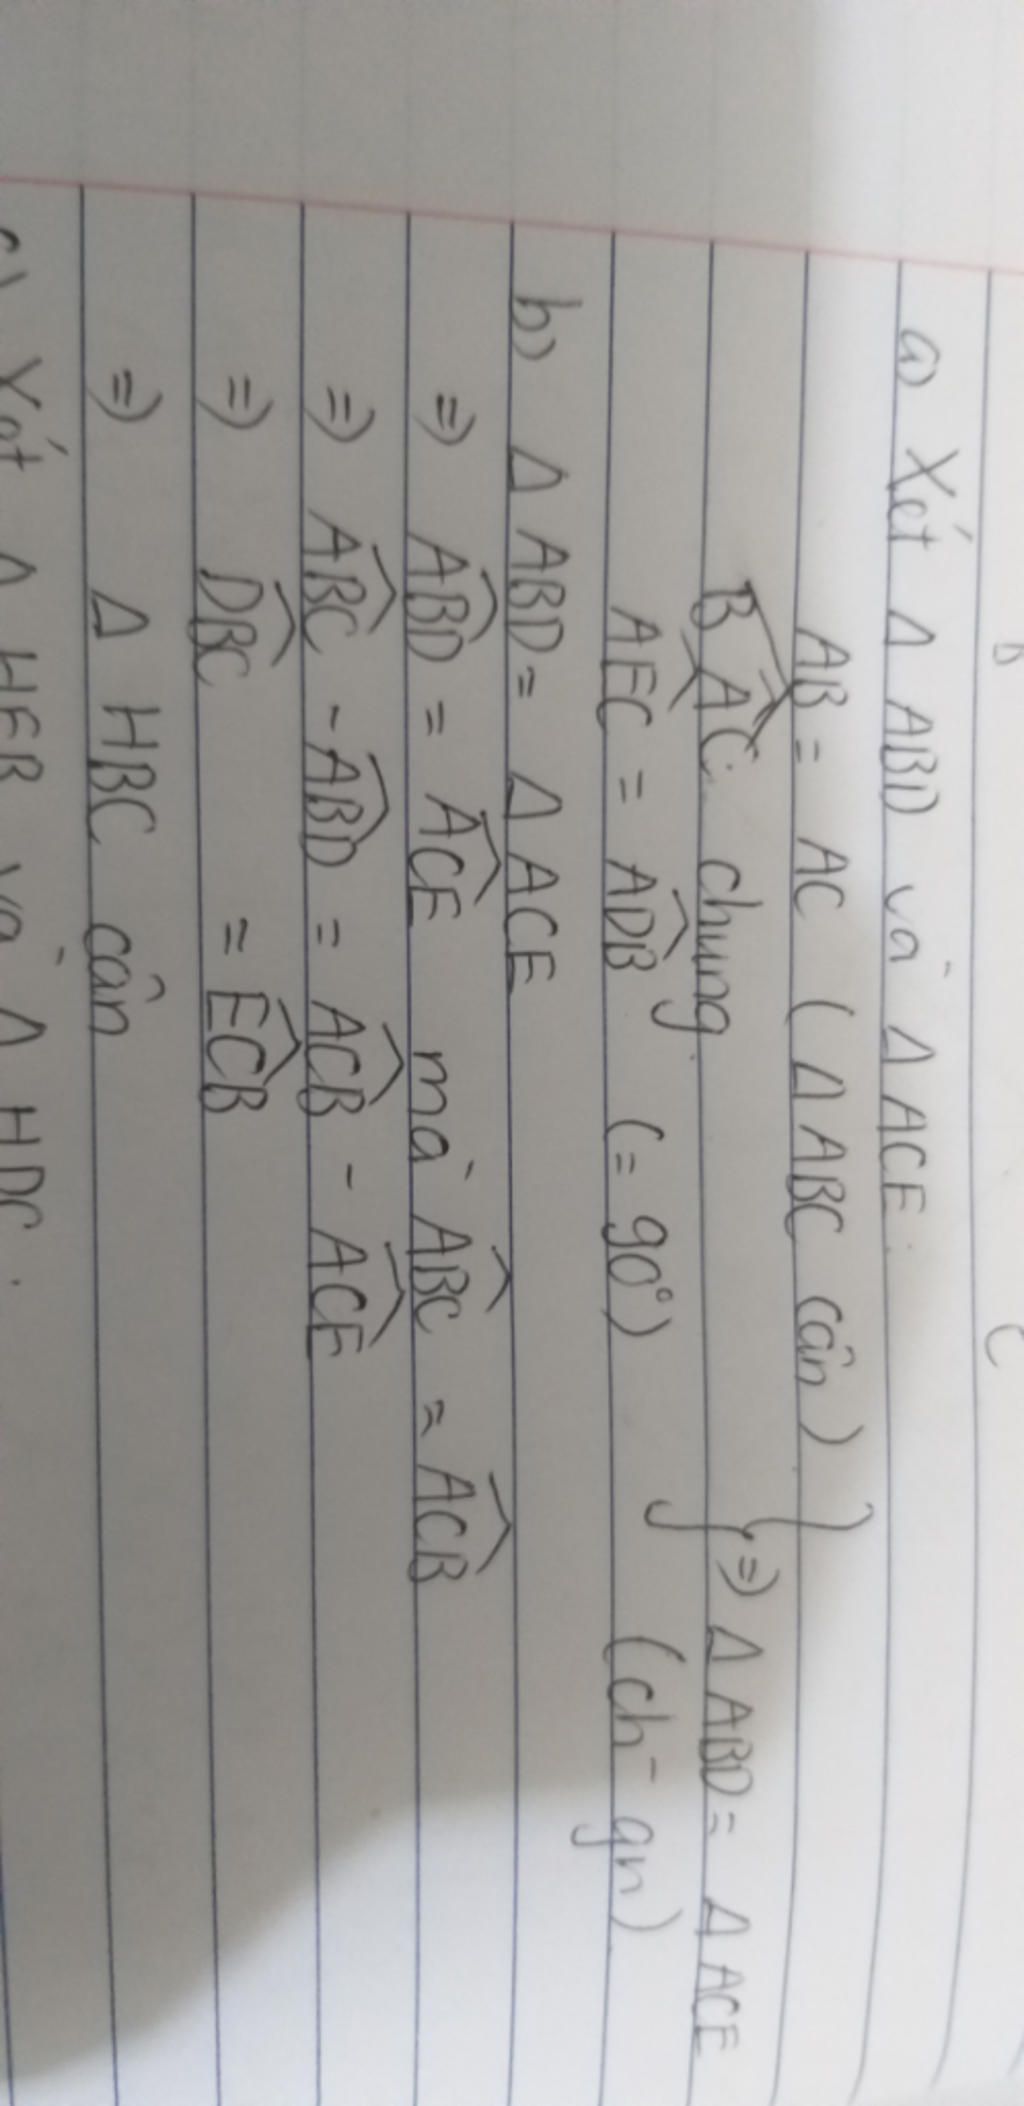 B C
a) Xét Δ ABD và Δ ACE.
AB = AC (Δ ABC cân)
BAC chung.
AEC = ADB (= 90°)
} => Δ ABD = Δ ACE
(ch - gn)
b) Δ ABD = Δ ACE
=> ABD = ACE mà ABC = ACB
=> ABC - ABD = ACB - ACE
=> DBC = ECB
=> Δ HBC cân
c) Xét Δ HEB và Δ HDC.